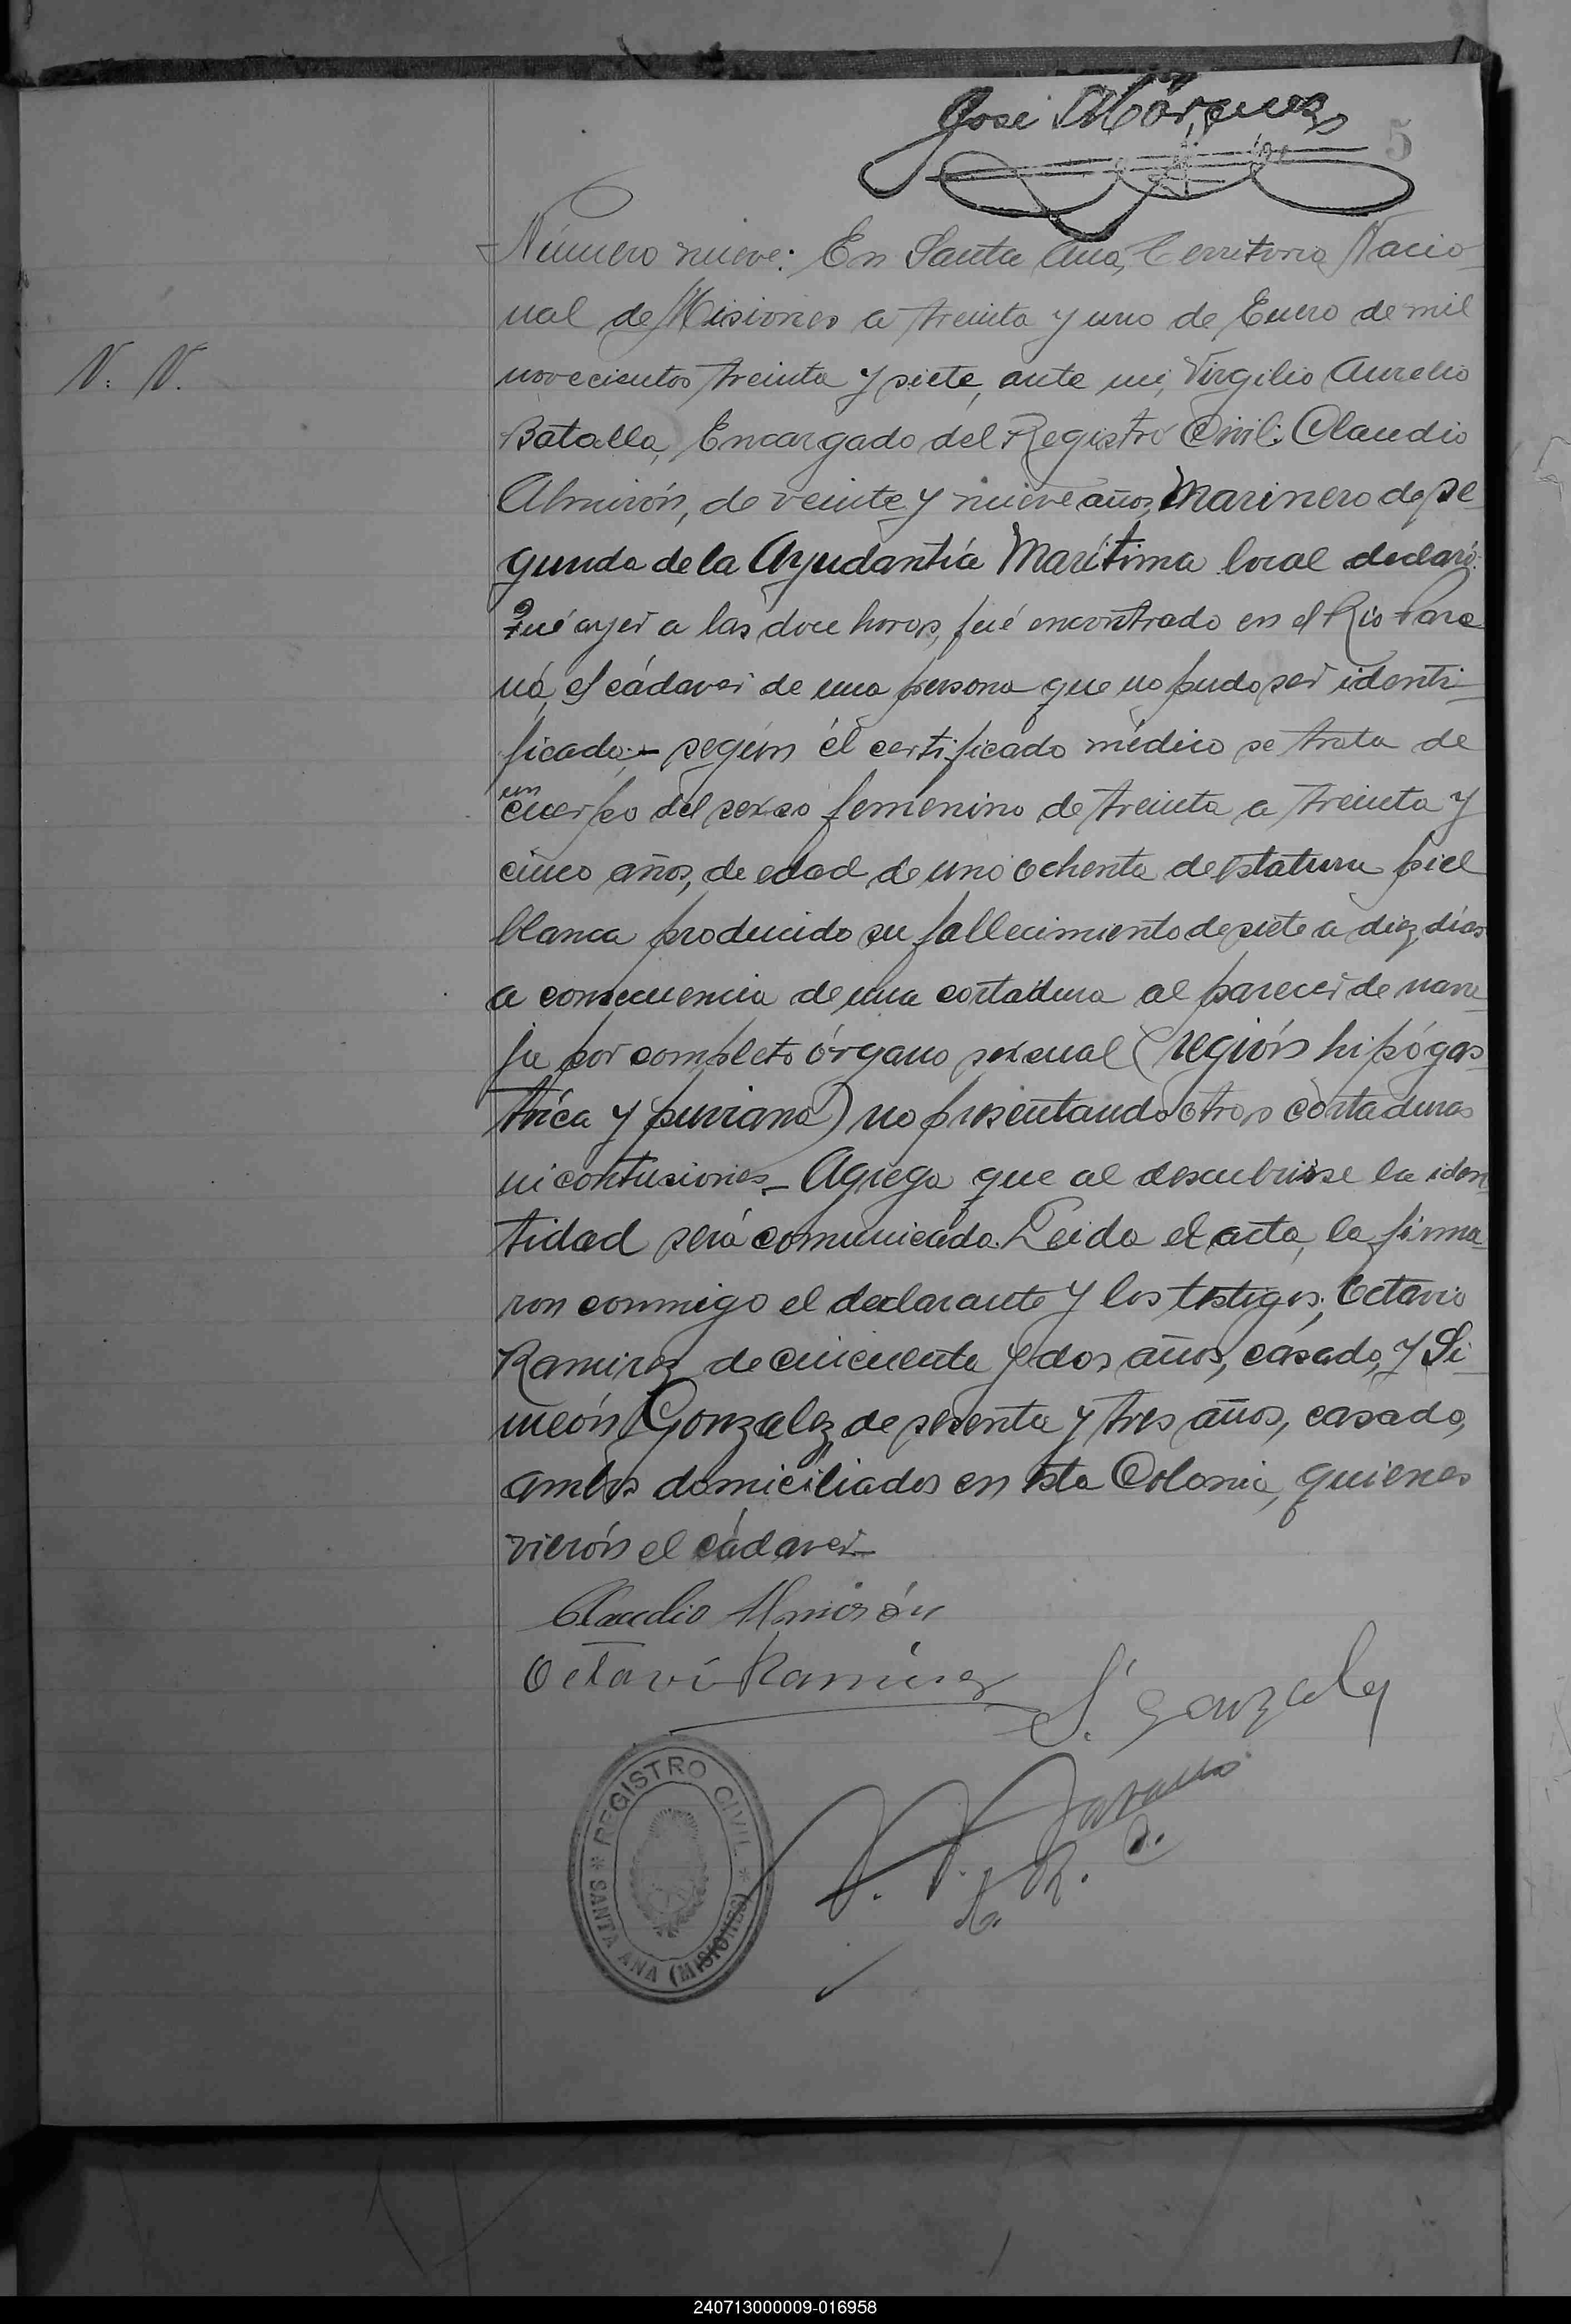 José Márquez
5
Número nueve: En Santa Ana, Territorio Nacio-
nal de Misiones a treinta y uno de Enero de mil
N. N.
novecientos treinta y siete, ante mi, Virgilio Aurelio
Batalla, Encargado del Registro Civil: Claudio
Almirón, de veinte y nueve años, Marinero de se-
gunda de la Ayudantía Marítima local declaró:
Qué ayer a las doce horas, fué encontrado en el Rio Para-
ná, el cádaver de una persona que no pudo ser identi-
ficada;- según el certificado médico se trata de
un
cuerpo del sexso femenino de treinta a treinta y
cinco años, de edad de uno ochenta de estatura piel
blanca producido su fallecimiento de siete a diez dias
a consecuencia de una cortadura al parecer de nava-
ja por completo órgano sexual (región hipógas-
trica y puviana) no presentando otras cortaduras
ni contusiones.- Agrega que al descubrirse la iden-
tidad será comunicada. Leida el acta, la firma-
ron conmigo el declarante y los testigos, Octavio
Ramirez de cincuenta y dos años, casado, y Si-
meón Gonzalez de sesenta y tres años, casado,
ambos domiciliados en esta Colonia, quienes
vierón el cádaver.-
Claudio Almirón
Octavi Ramirez
S. Gonzalez
REGISTRO CIVIL
* SANTA ANA (MISIONES) *
240713000009-016958